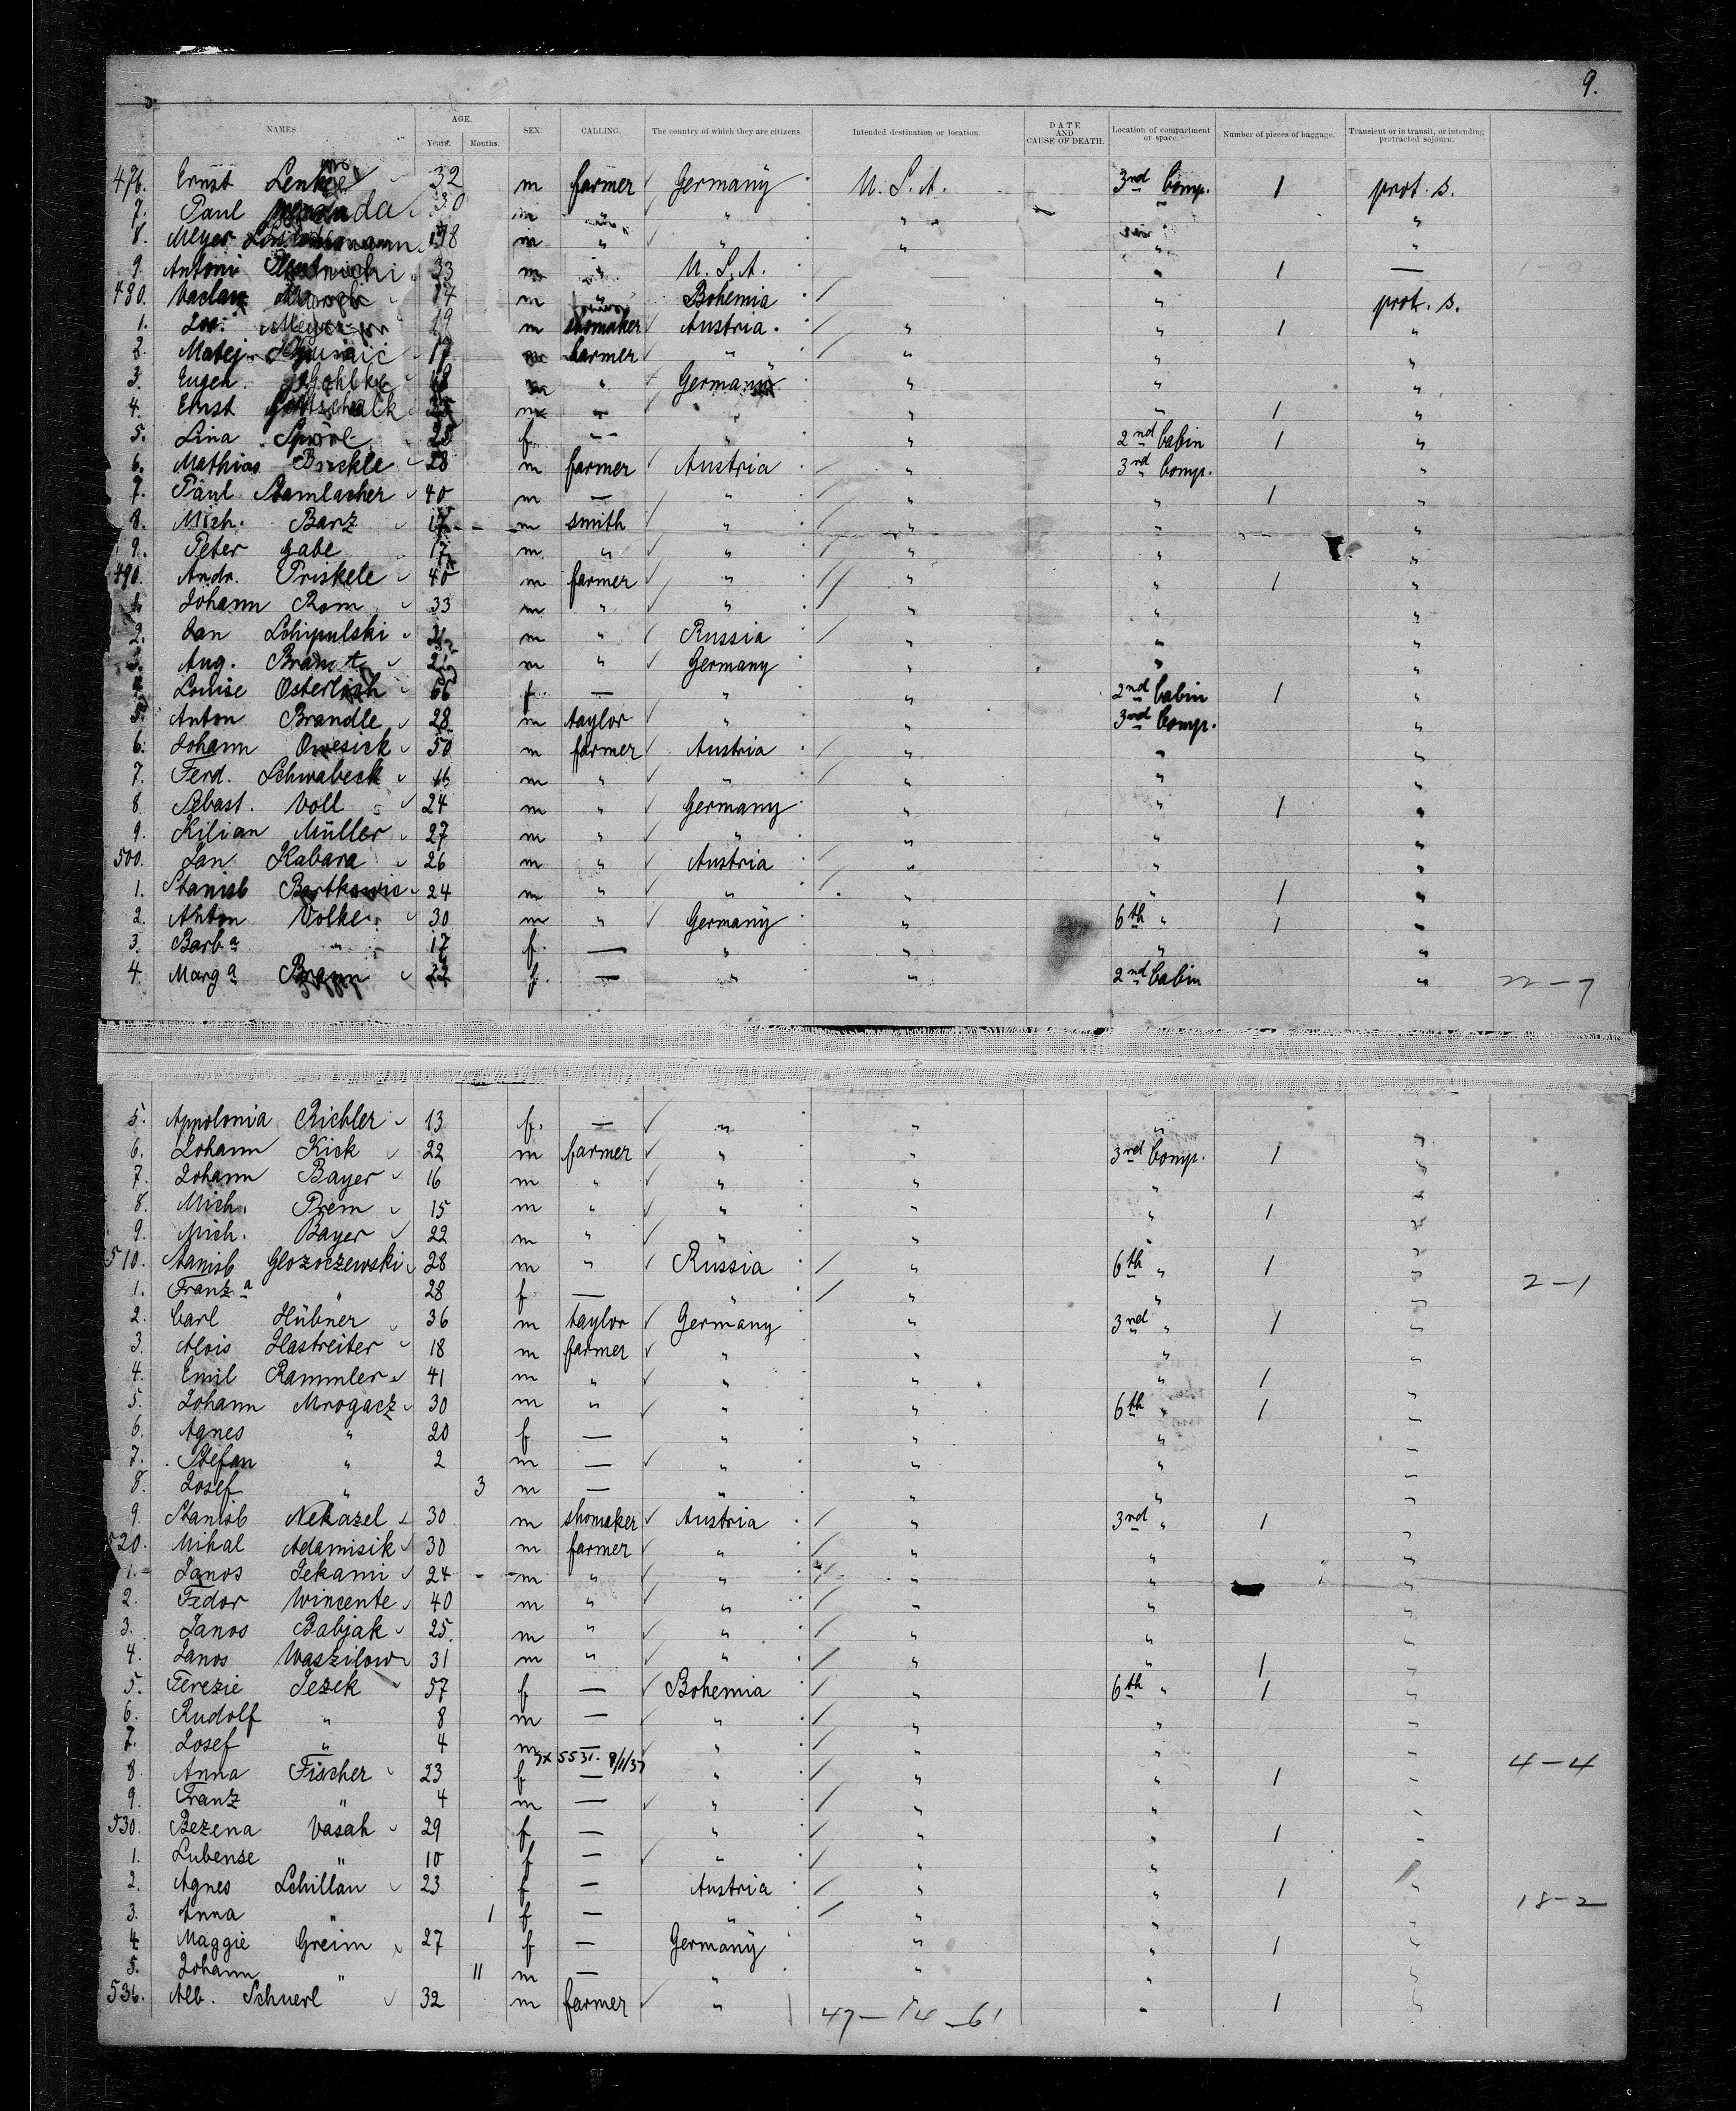 9.
NAMES. AGE. Years. Months. SEX. CALLING. The country of which they are citizens. Intended destination or location. DATE AND CAUSE OF DEATH. Location of compartment or space. Number of pieces of baggage. Transient or in transit, or intending protracted sojourn.
476. Ernst 32 m farmer Germany U. S. A. 3rd Comp. 1 prot. s.
7. Paul 30 m " " " "
8. Meyer m " " " " "
9. Antoni 33 m " U. S. A. " 1 —
480. Vaclav m " Bohemia " prot. s.
1. m shomaker Austria. " " 1 "
2. Matej 17 farmer " " " "
3. Eugen Gohlke " Germany " " "
4. Ernst Gottschalk m — " " " 1 "
5. Lina f — " " 2nd Cabin 1 "
6. Mathias 28 m farmer Austria " 3rd Comp. "
7. Paul Stamlacher 40 m — " " " 1 "
8. Mich. Barz 17 m smith " " " "
9. Peter Gabe 17 m " " " " "
490. Andr. Priskele 40 m farmer " " " 1 "
1. Johann Rom 33 m " " " " "
2. Jan Schipulski m " Russia " " "
3. Aug. Bramt m " Germany " " "
4. Louise 66 f — " " 2nd Cabin 1 "
5. Anton Brandle 28 m taylor " " 3rd Comp. "
6. Johann Owesick 50 m farmer Austria " " "
7. Ferd. Schwabeck 46 m " " " " "
8. Sebast. Voll 24 m " Germany " " 1 "
9. Kilian Müller 27 m " " " " "
500. Jan Kabara 26 m " Austria " " "
1. Stanisl Bartkowic 24 m " " " 1 "
2. Anton Volke 30 m " Germany " 6th " 1 "
3. Barba " 17 f. — " " " "
4. Marga Braun 22 f. — " " 2nd Cabin " 22-7
5. Appolonia Richler 13 f. — " " " "
6. Johann Kick 22 m farmer " " 3rd Comp. 1 "
7. Johann Bayer 16 m " " " " "
8. Mich. Prem 15 m " " " " 1 "
9. Mich. Bayer 22 m " " " " "
510. Stanisl Glozoczewski 28 m " Russia " 6th " 1 "
1. Franza " 28 f — " " " " 2-1
2. Carl Hübner 36 m taylor Germany " 3rd " 1 "
3. Alois Hastreiter 18 m farmer " " " "
4. Emil Rammler 41 m " " " " 1
5. Johann Mrogacz 30 m " " " 6th " 1 "
6. Agnes " 20 f — " " "
7. Stefan " 2 m — " " " "
8. Josef " 3 m — " " " "
9. Stanisl Nekazel 30 m shomaker Austria " 3rd " 1 "
520. Mihal Adamisik 30 m farmer " " " "
1. Janos Jekami 24 m " " " " "
2. Fedor Wincente 40 m " " " " "
3. Janos Babjak 25. m " " " " "
4. Janos Waszilow 31 m " " " " 1 "
5. Terezie Jezek 57 f — Bohemia " 6th " 1 "
6. Rudolf " 8 m — " " " "
7. Josef " 4 m — " " " " 4-4
5531. 9/1/37
8. Anna Fischer 23 f — " " " 1 "
9. Franz " 4 m — " " " "
530. Bezena Vasah 29 f — " " " 1 "
1. Lubense " 10 f — " " "
2. Agnes Schillan 23 f — Austria " " 1 " 18-2
3. Anna " 1 f — " " " "
4. Maggie Greim 27 f — Germany " " 1 "
5. Johann " 11 m — " " " "
536. Alb. Schuerl 32 m farmer " " " 1 "
47-14-61